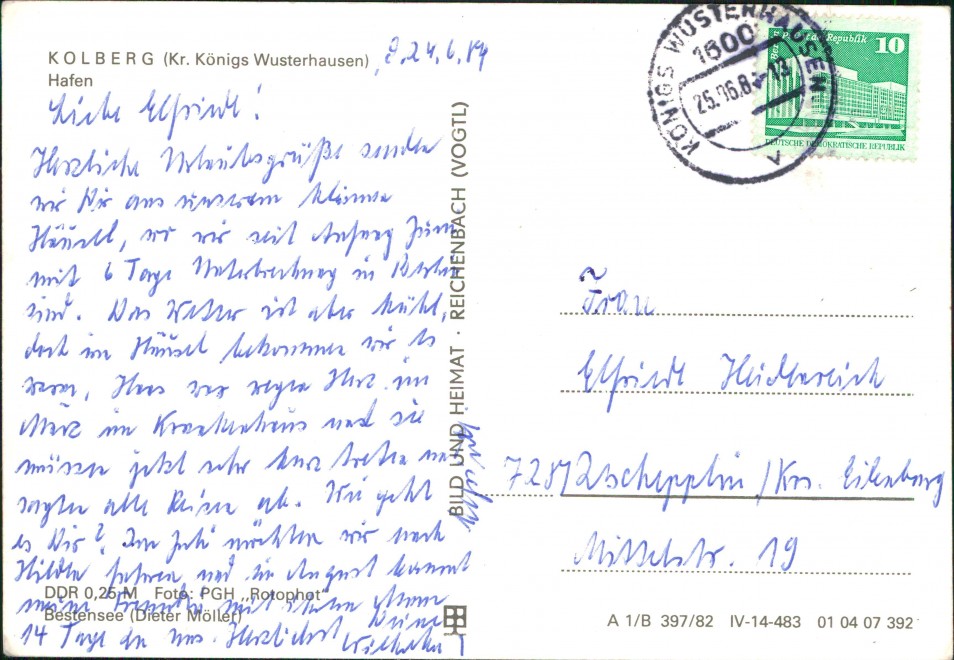 KOLBERG (Kr. Königs Wusterhausen)
Hafen
d. 24.6.84
Liebe Elfriede!
Herzliche Urlaubsgrüße senden
wir Dir aus unserem kleinen
Häusel, wo wir seit Anfang Juni
mit 6 Tage Unterbrechung in Berlin
sind. Das Wetter ist aber kühl,
doch im Häusel bekommen wir es
warm. Hans war wegen Herz im
März im Krankenhaus und sie
müssen jetzt sehr kurz treten und
sagten alle Reisen ab. Wie geht
es Dir? Im Juli möchten wir nach
fahren und im August kommt
meine Freundin mit ihrem Mann
14 Tage zu uns. Herzlichst Deine
DDR 0,25 M Foto: PGH „Rotophot"
Bestensee (Dieter Möller)
BILD UND HEIMAT · REICHENBACH (VOGTL)
KÖNIGS WUSTERHAUSEN
1600
25.06.84-13
v
Berlin Palast der Republik 10
DEUTSCHE DEMOKRATISCHE REPUBLIK
Frau
Elfriede Heidenreich
7281 Zschepplin / Krs. Eilenburg
Mittelstr. 19
A 1/B 397/82 IV-14-483 01 04 07 392